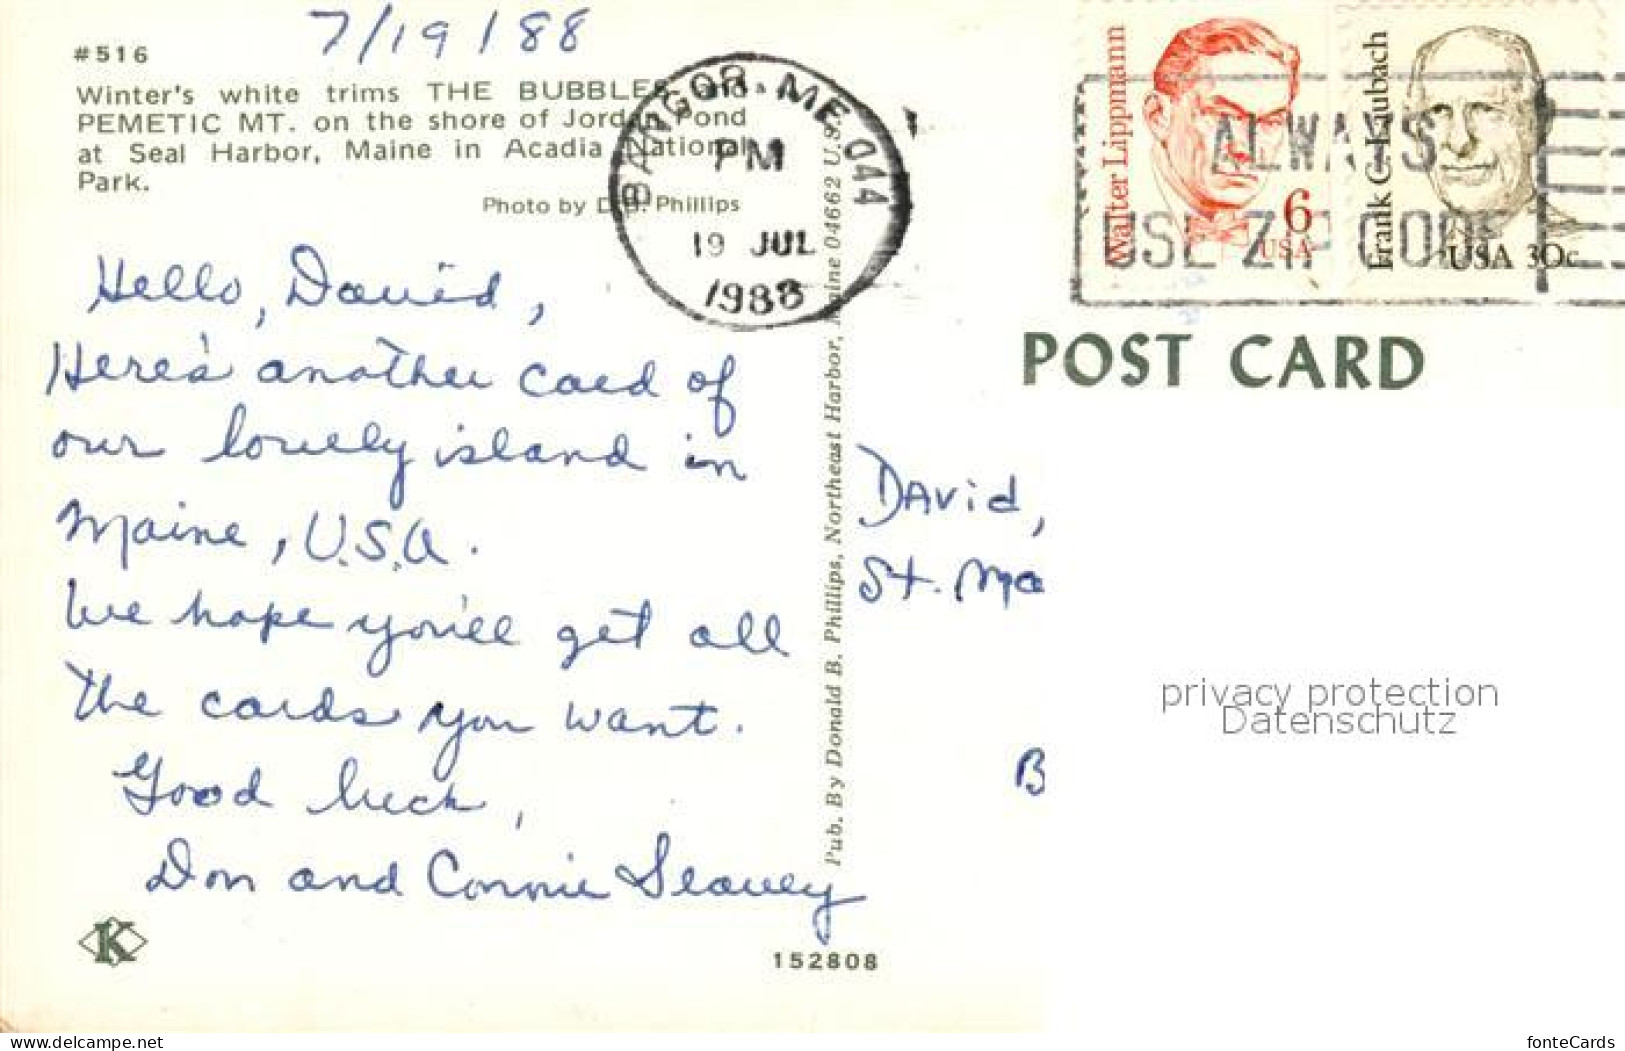 7/19/88
#516
Winter's white trims THE BUBBLES and
PEMETIC MT. on the shore of Jordan Pond
at Seal Harbor, Maine in Acadia National
Park.
Photo by D.B. Phillips
BANGOR, ME 044
PM
19 JUL
1988
Walter Lippmann
6
USA
Frank C. Laubach
USA 30c
ALWAYS
USE ZIP CODE
Hello, David,
Here's another card of
our lovely island in
Maine, U.S.A.
We hope you'll get all
the cards you want.
Good luck,
Don and Connie Seavey
Pub. By Donald B. Phillips, Northeast Harbor, Maine 04662 U.S.
POST CARD
David,
St. Ma
B
privacy protection
Datenschutz
K
152808
www.delcampe.net
fonteCards